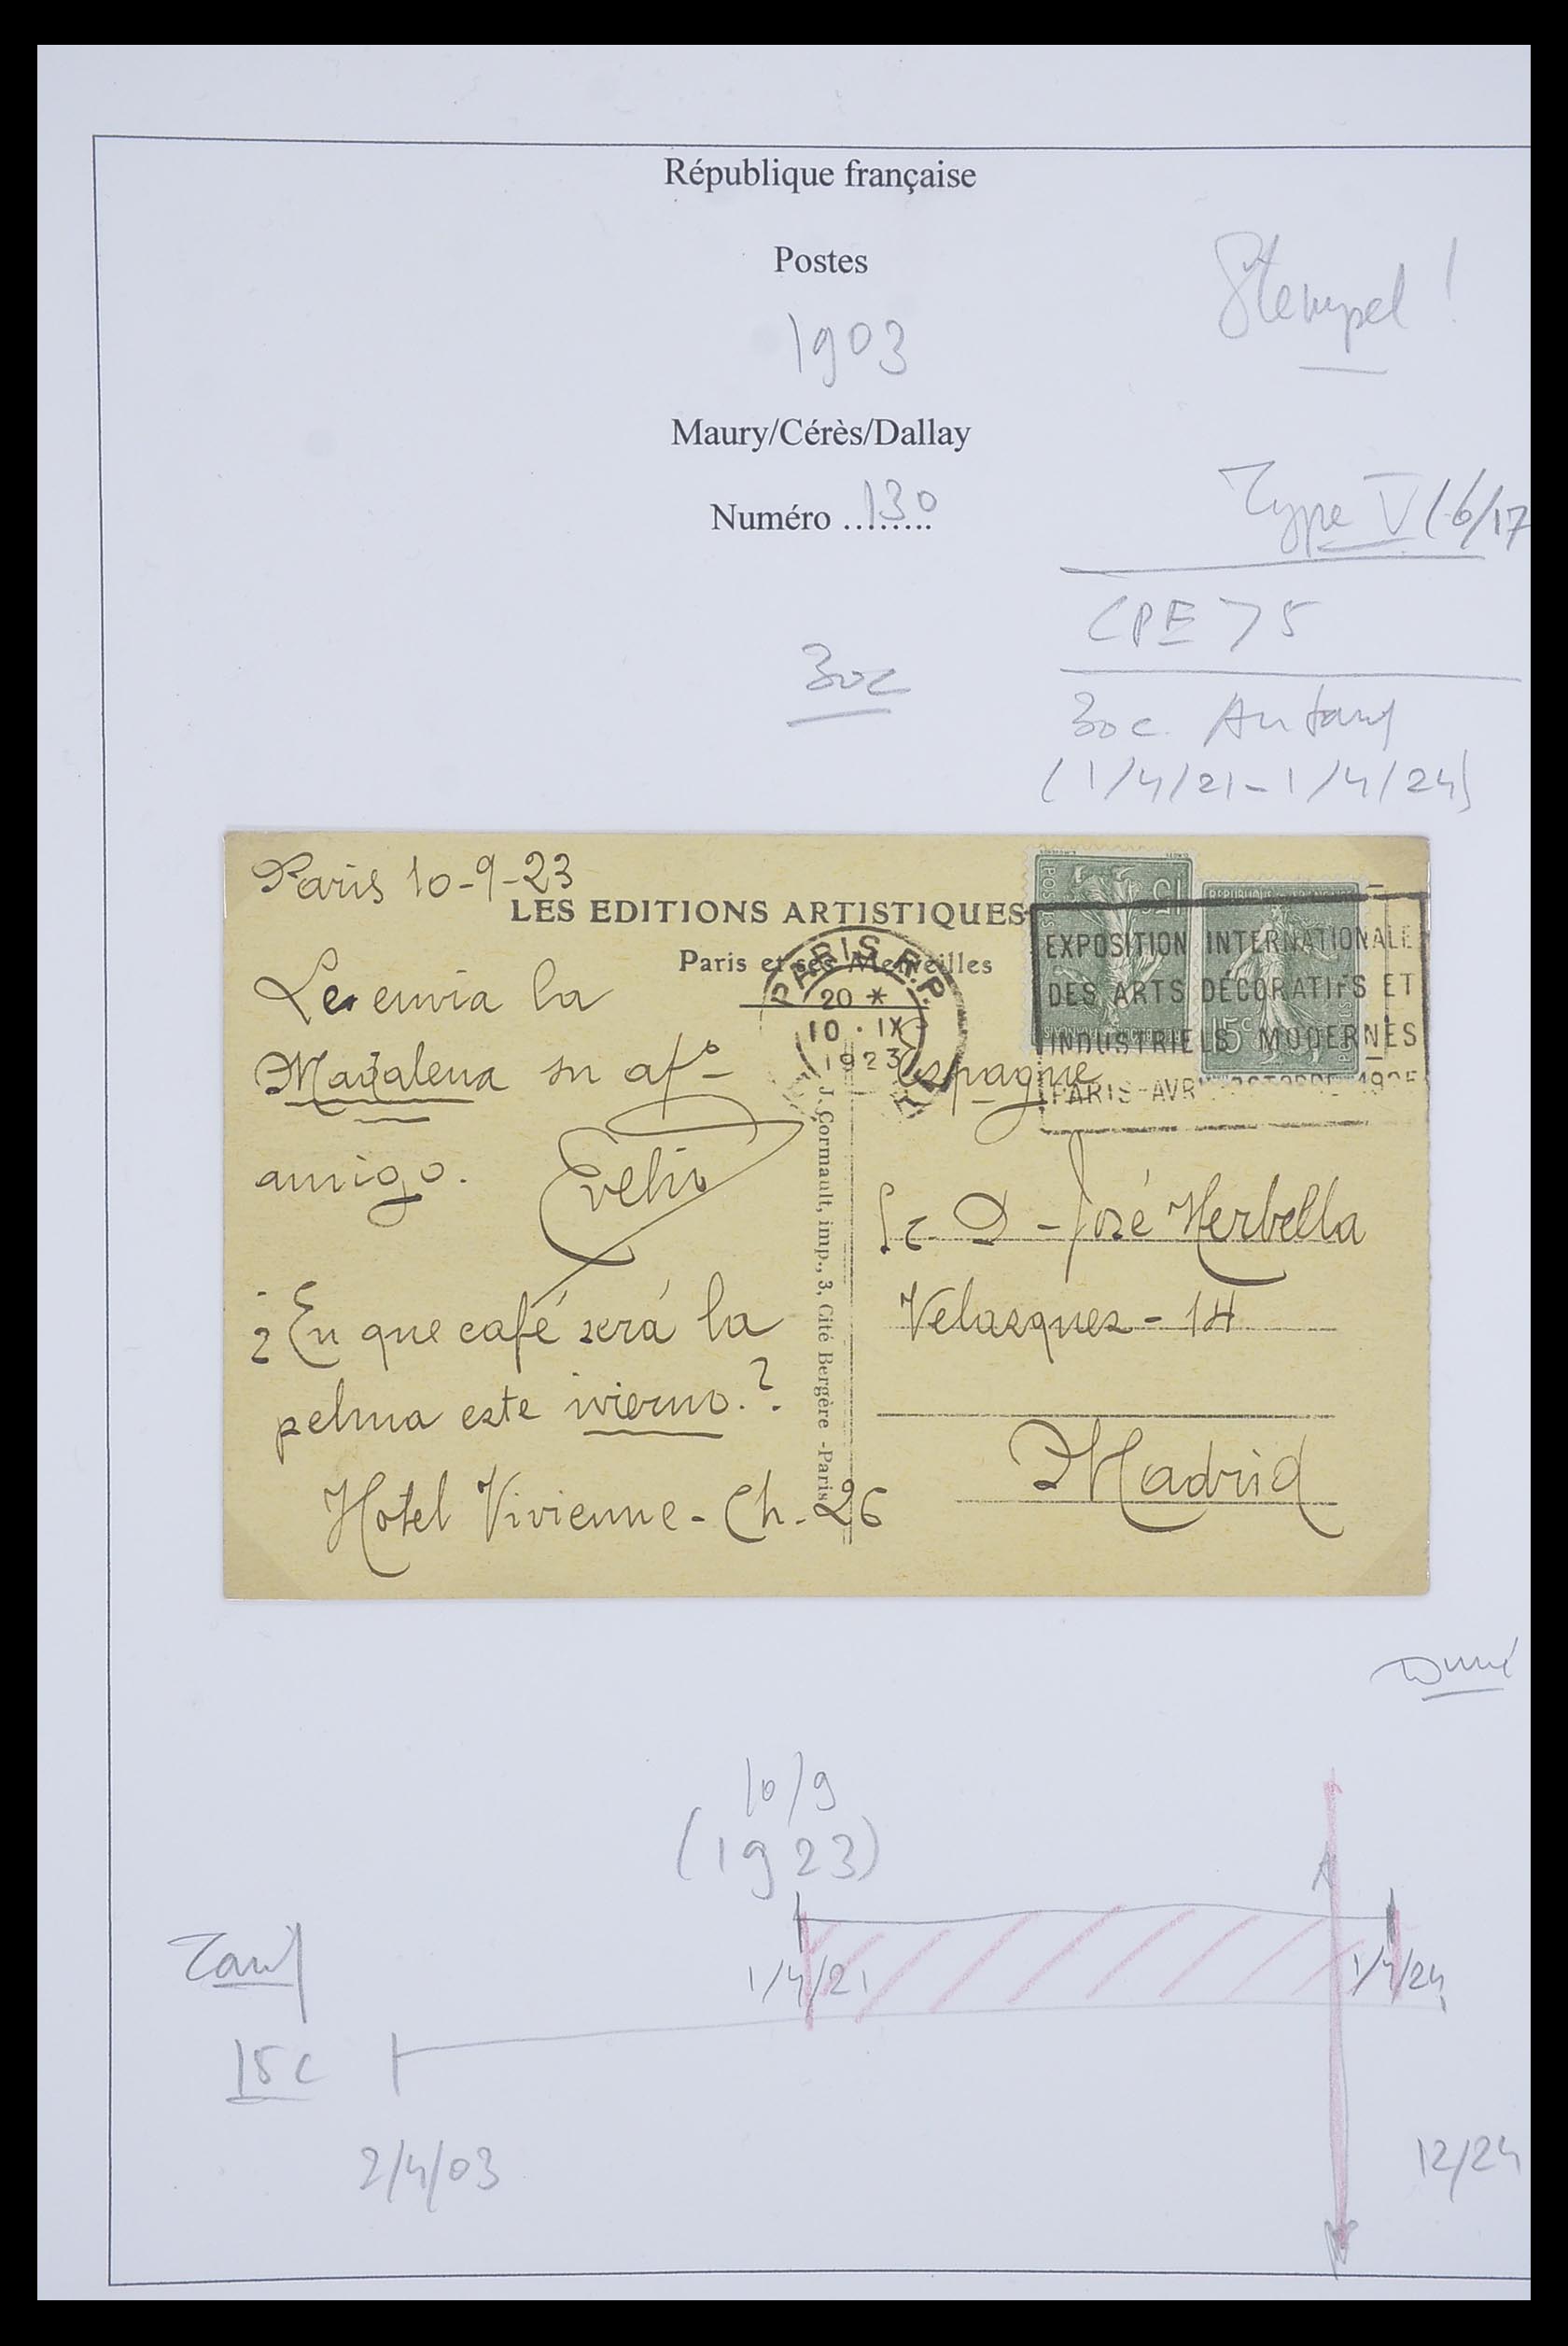 République française
Postes
1903
Stempel !
Maury/Cérès/Dallay
Numéro ........130
Type V (6/17
CPE 75
30c
30c Auftarif
(1/4/21-1/4/24)
Paris 10-9-23
LES EDITIONS ARTISTIQUES
Paris et ses Merveilles
Le envia la
Magdalena su afº
amigo.
¿En que café será la
pelma este invierno.?
Hotel Vivienne - Ch. 26
J. Cormault, imp., 3, Cité Bergère -Paris
PARIS R.P.
20 *
10 · IX
1923
15
REPUBLIQUE FRANÇAISE
15c
EXPOSITION INTERNATIONALE
DES ARTS DÉCORATIFS ET
INDUSTRIELS MODERNES
PARIS-AVR 1925
Espagne
Sr. D - José Herbella
Velazquez - 14
Madrid
10/9
(1923)
Tarif
1/4/21
1/4/24
15c
2/4/03
12/24